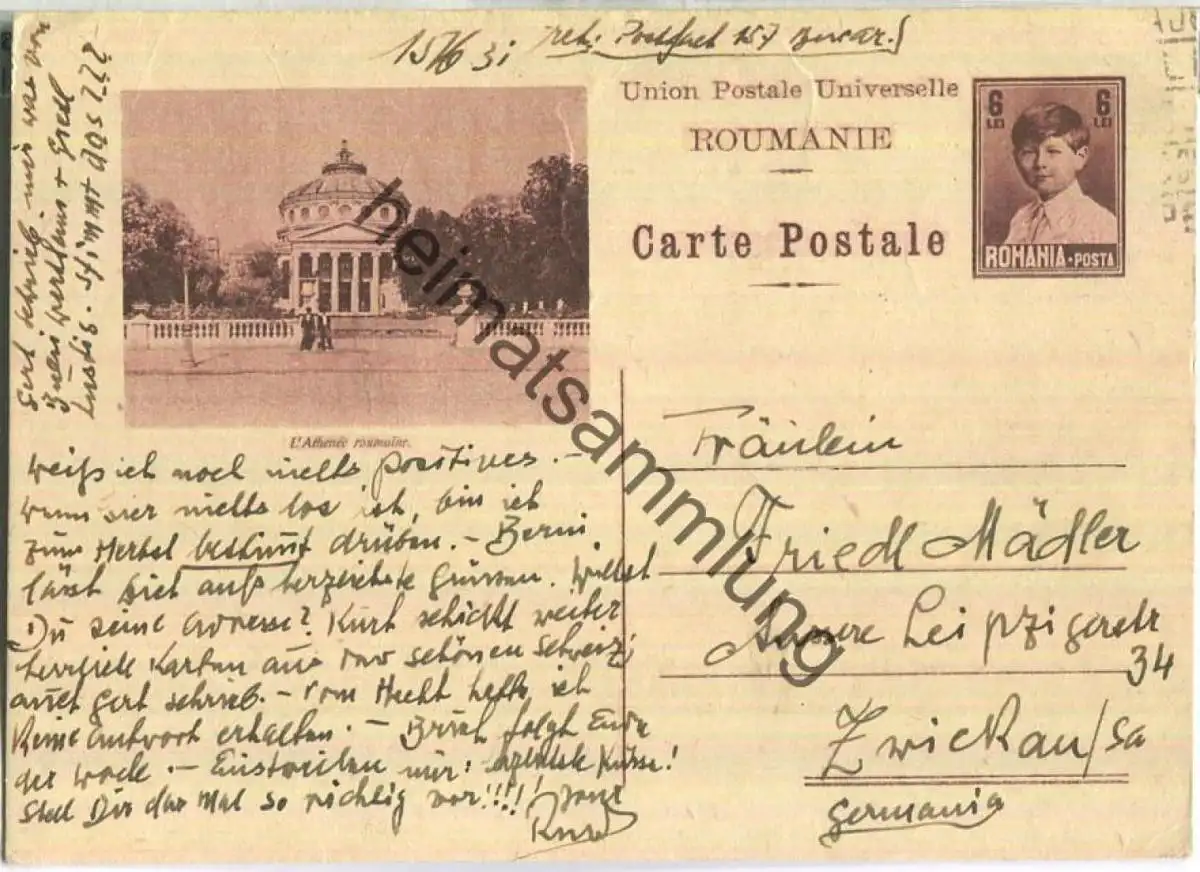 15/6 31
Postfach 157
Union Postale Universelle
ROUMANIE
Carte Postale
6 LEI 6 LEI
ROMÂNIA • POSTA
Gert schrieb mir was von
+ Gredl
Lustig. Stimmt das ???
L'Athenée roumaine.
Weiß ich noch nichts positives. –
Wenn hier nichts los ist, bin ich
zum Herbst bestimmt drüben. –
läßt Dich aufs herzlichste Grüssen. Willst
Du seine Adresse? Kurt schickt weiter
Karten aus der schönen Schweiz;
auch Gert schrieb. – Vom Hecht hatte ich
Keine Antwort erhalten. – Brief folgt Ende
der Woche. – Einstweilen nur: Küsse!
Stell Dir das mal so richtig vor!!!!
Fräulein
Friedl Mädler
Äussere Leipzigerstr
34
Zwickau/Sa
Germania
heimatsammlung